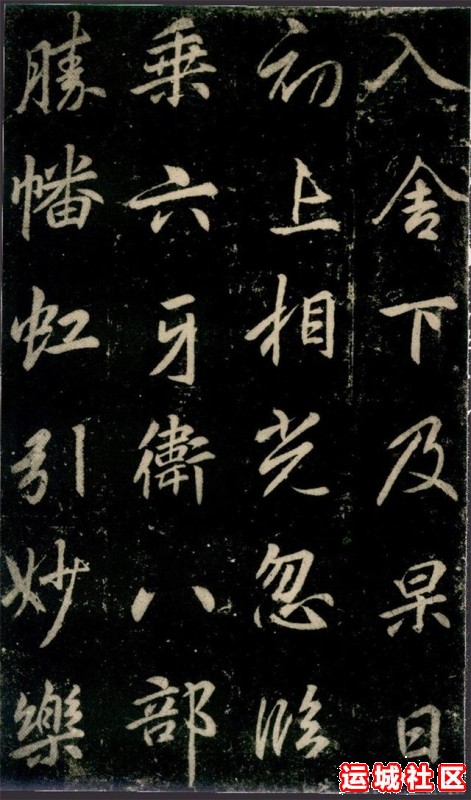 入舍下及杲日
初上相光忽臨
乗六牙衛八部
勝幡虹引妙樂
运城社区